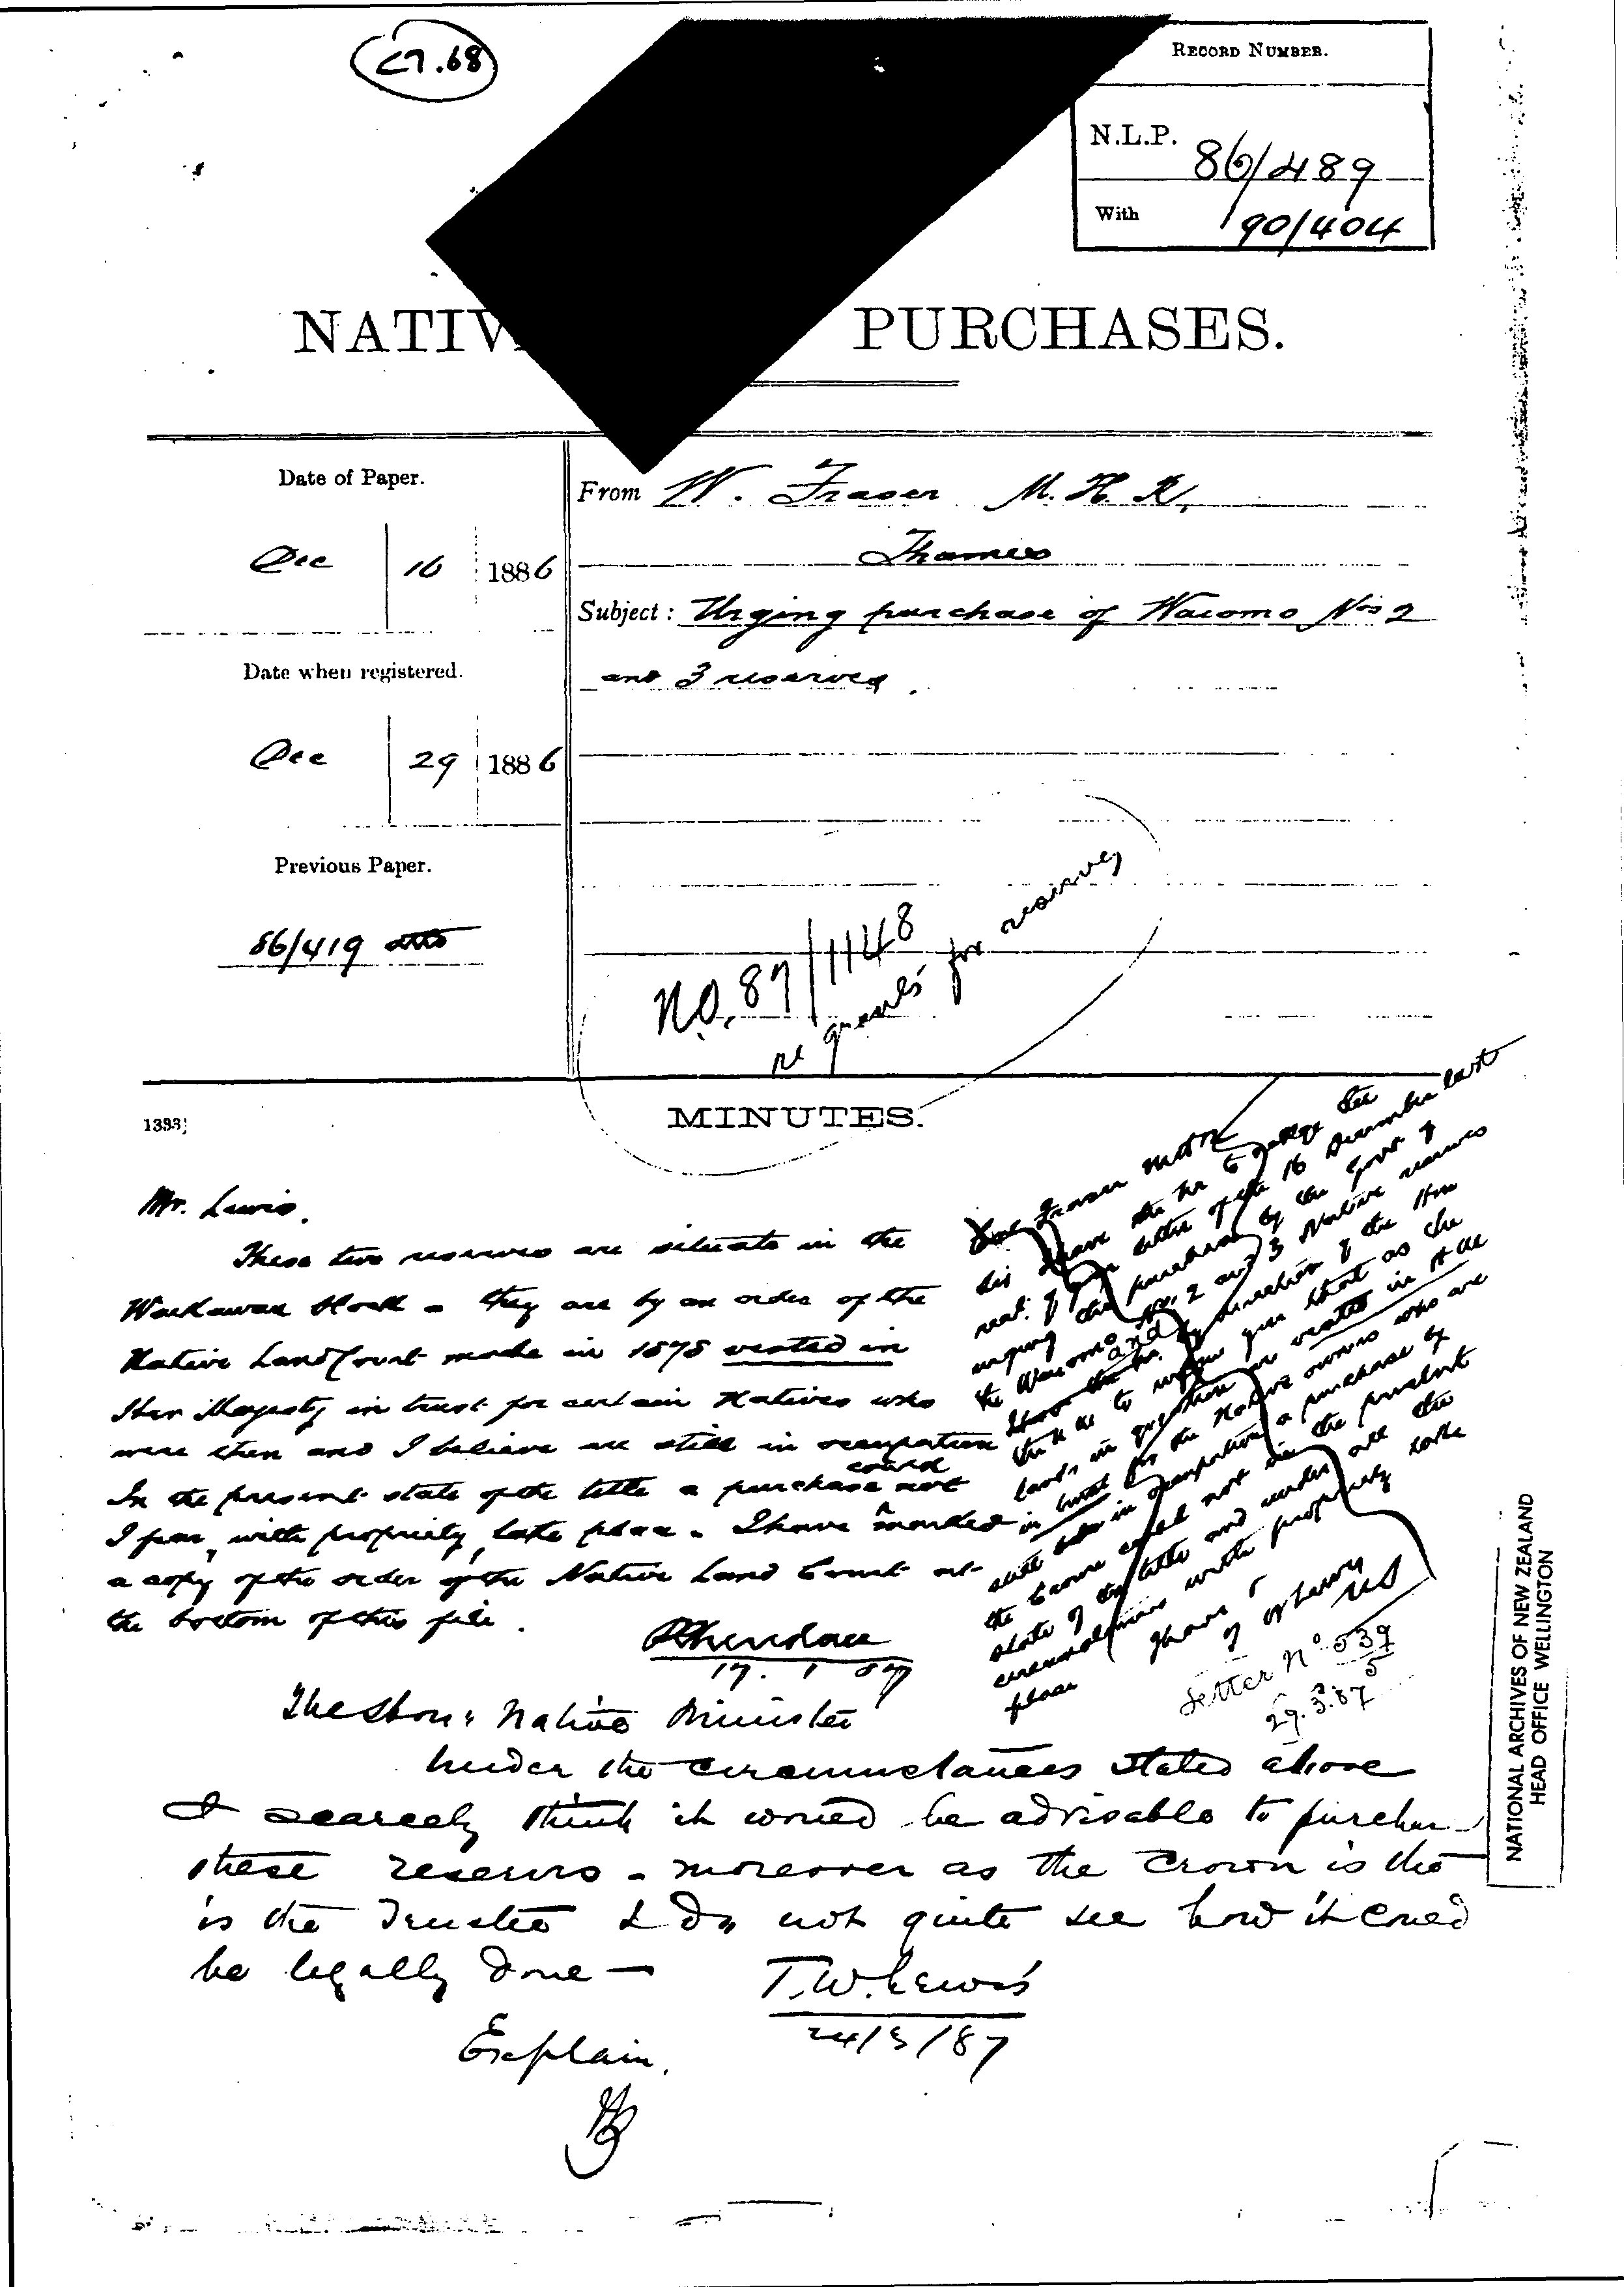 C7.68
RECORD NUMBER.
N.L.P. 86/489
With 90/404
NATIV PURCHASES.
Date of Paper.
Dec 16 1886
Date when registered.
Dec 29 1886
Previous Paper.
86/419
From W. Fraser M.H.R,
Thames
Subject: Urging purchase of Waiomo Nos 2
and 3 reserves.
N.O. 87/1148
re for reserves
MINUTES.
Mr. Lewis.
These two reserves are situate in the
Block - they are by an order of the
Native Land Court made in 1878 vested in
Her Majesty in trust for certain Natives who
were then and I believe are still in occupation
In the present state of the title a purchase could not
I fear, with propriety, take place. I have marked
a copy of the order of the Native Land Court at
the bottom of this file.
17. 1 87
The Hon: Native Minister
Under the circumstances stated above
I scarcely think it would be advisable to purchase
these reserves - moreover as the Crown is the
is the Trustee I do not quite see how it could
be legally done —
T.W. Lewis
24/3/87
Explain.
Fraser MHR
letter of the 16 December last
urging the purchase by the Govt of
the Waiomo Nos. 2 and 3 Native reserves
and direction of the Hon
to inform you that as the
lands in question are vested in H.M.
in trust for the Native owners who are
still in occupation a purchase by
the Crown could not in the present
state of the title and under all the
circumstances with propriety take
place
I have
Letter No 539
29.3.87
NATIONAL ARCHIVES OF NEW ZEALAND
HEAD OFFICE WELLINGTON